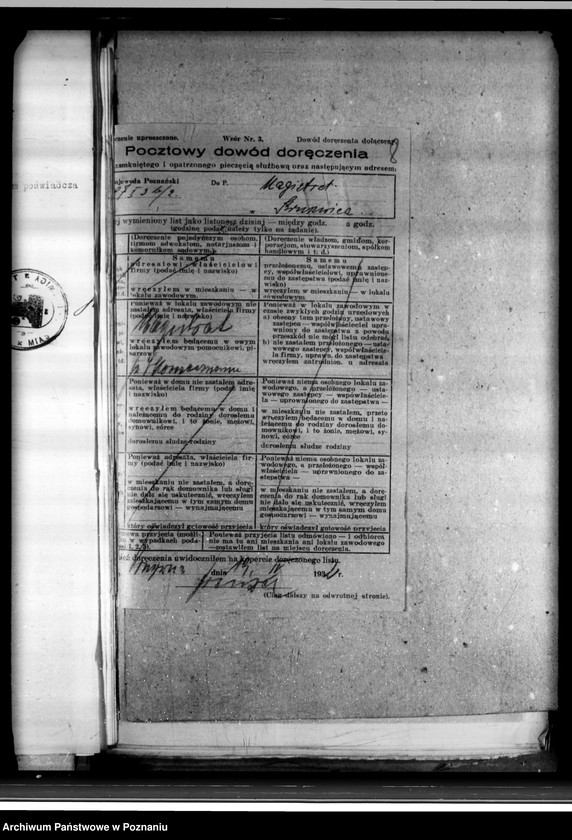 czenie uproszczone. Wzór Nr. 3. Dowód doręczenia dołączać
8
Pocztowy dowód doręczenia
zamkniętego i opatrzonego pieczęcią służbową oraz następującym adresem:
jewoda Poznański
Do P. Magistrat
m poświadcza
wymieniony list jako listonosz dzisiaj — między godz. a godz.
(godzinę podać należy tylko na żądanie).
(Doręczenie pojedynczym osobom, firmom adwokatom, notarjuszom i komornikom sądowym).
Samemu
adresatowi — właścicielowi firmy (podać imię i nazwisko)
wręczyłem w mieszkaniu — w lokalu zawodowym.
Ponieważ w lokalu zawodowym nie zastałem adresata, właściciela firmy (podać imię i nazwisko)
Magistrat
wręczyłem będącemu w owym lokalu zawodowym pomocnikowi, pisarzowi
Ponieważ w domu nie zastałem adresata, właściciela firmy (podać imię i nazwisko)
wręczyłem będącemu w domu i należącemu do rodziny dorosłemu domownikowi, i to żonie, mężowi, synowi, córce
dorosłemu słudze rodziny
Ponieważ adresata, właściciela firmy (podać imię i nazwisko)
w mieszkaniu nie zastałem, a doręczenia do rąk domownika lub sługi nie dało się uskutecznić, wręczyłem mieszkającemu w tym samym domu gospodarzowi — wynajmującemu
który oświadczył gotowość przyjęcia
(Doręczenie władzom, gminom, korporacjom, stowarzyszeniom, spółkom handlowym i t. d.)
Samemu
przełożonemu, ustawowemu zastępcy, współwłaścicielowi, uprawnionemu do zastępstwa (podać imię i nazwisko)
wręczyłem w mieszkaniu — w lokalu zawodowym
Ponieważ w lokalu zawodowym w czasie zwykłych godzin urzędowych
a) obecny tam przełożony, ustawowy zastępca — współwłaściciel uprawniony do zastępstwa z powodu przeszkód nie mógł listu odebrać,
b) nie zastałem przełożonego — ustawowego zastępcy, współwłaściciela firmy, uprawn. do zastępstwa
wręczyłem zatrudnion. u adresata
Ponieważ niema osobnego lokalu zawodowego, a przełożonego — ustawowego zastępcy — współwłaściciela — uprawnionego do zastępstwa —
w mieszkaniu nie zastałem, przeto wręczyłem będącemu w domu i należącemu do rodziny dorosłemu domownikowi, i to żonie, mężowi, synowi, córce
dorosłemu słudze rodziny
Ponieważ niema osobnego lokalu zawodowego, a przełożonego — współwłaściciela — uprawnionego do zastępstwa —
w mieszkaniu nie zastałem, a doręczenia do rąk domownika lub sługi nie dało się uskutecznić, wręczyłem mieszkającemu w tym samym domu gospodarzowi — wynajmującemu
który oświadczył gotowość przyjęcia
Ponieważ przyjęcia listu odmówiono — i odbiorca nie ma tu ani mieszkania ani lokalu zawodowego —zostawiłem list na miejscu doręczenia.
doręczenia uwidoczniłem na kopercie doręczonego listu.
dnia 193 r.
(Ciąg dalszy na odwrotnej stronie).
Archiwum Państwowe w Poznaniu